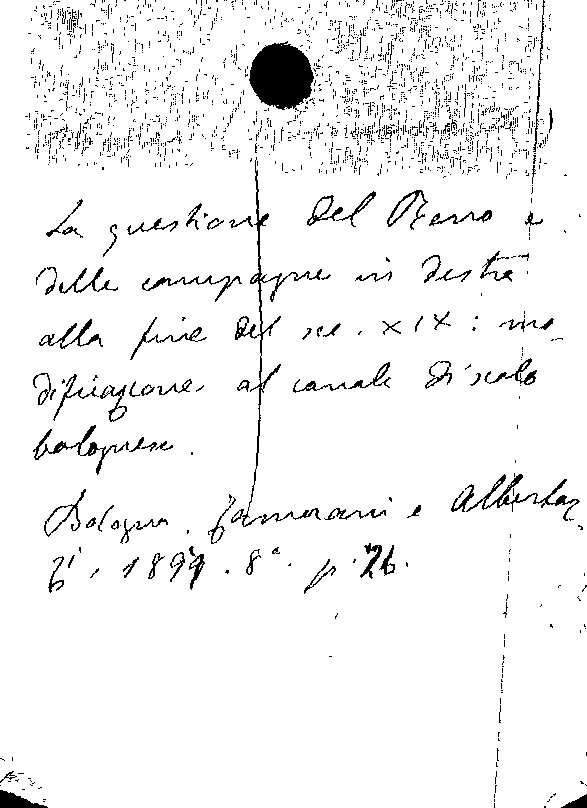 La questione del Reno e
delle campagne in destra
alla fine del sec. XIX: mo-
dificazione al canale di scolo
bolognese.
Bologna. Zamorani e Albertaz
zi, 1899. 8°. p. 26.